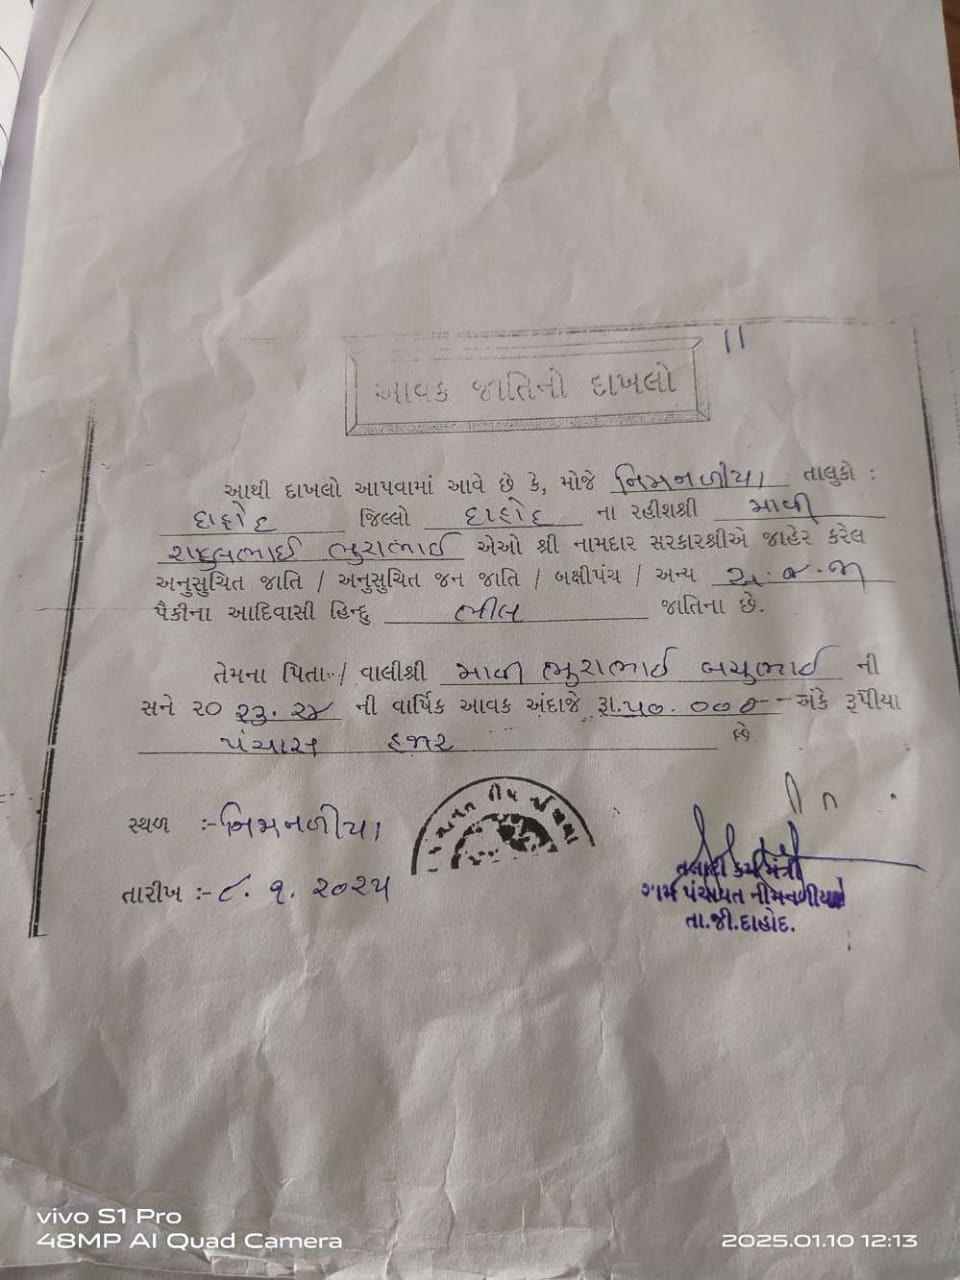 11
આવક જાતિનો દાખલો
આથી દાખલો આપવામાં આવે છે કે, મોજે નિમનળીયા તાલુકો :
દાહોદ જિલ્લો દાહોદ ના રહીશશ્રી માવી
રાહુલભાઈ ભુરાભાઈ એઓ શ્રી નામદાર સરકારશ્રીએ જાહેર કરેલ
અનુસુચિત જાતિ / અનુસુચિત જન જાતિ / બક્ષીપંચ / અન્ય અ.જ.જા
પૈકીના આદિવાસી હિન્દુ ભીલ જાતિના છે.
તેમના પિતા / વાલીશ્રી માવી ભુરાભાઈ બચુભાઈ ની
સને ૨૦ ૨૩.૨૪ ની વાર્ષિક આવક અંદાજે રૂા.૫૦.૦૦૦ - અંકે રૂપીયા
પંચાસ હજાર છે
સ્થળ :- નિમનળીયા
તારીખ :- ૮.૧.૨૦૨૫
તલાટી કમ મંત્રી
ગ્રામ પંચાયત નીમનળીયા
તા.જી.દાહોદ.
vivo S1 Pro
48MP AI Quad Camera
2025.01.10 12:13